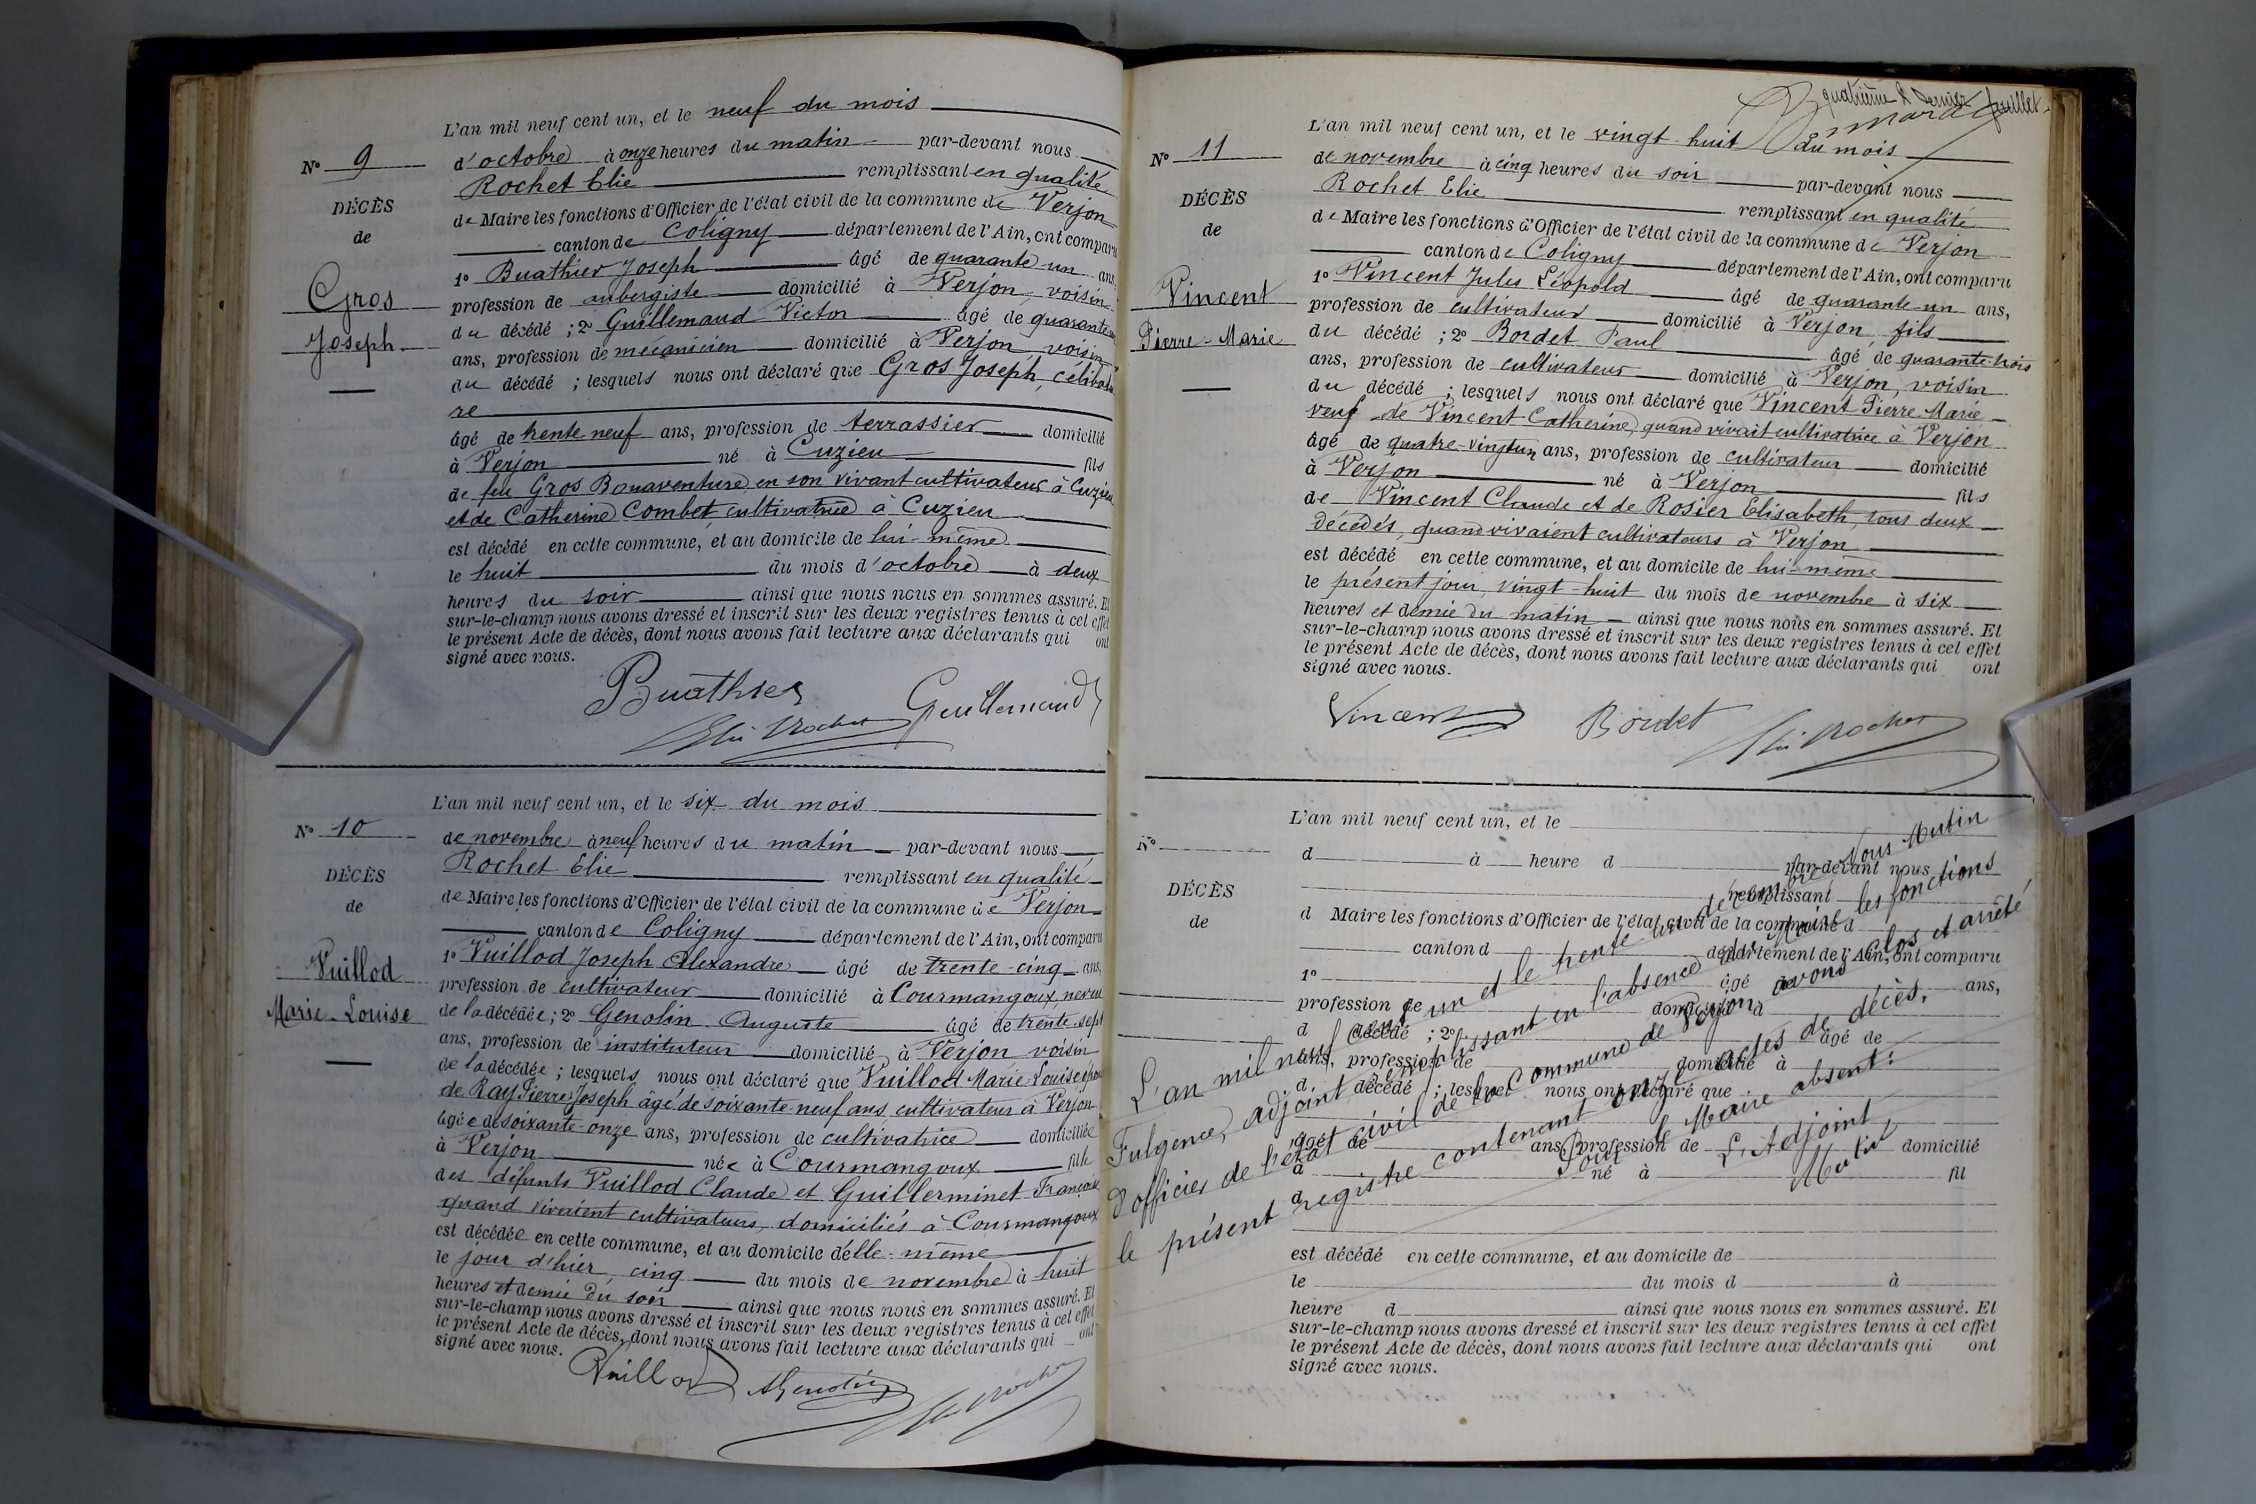 L'an mil neuf cent un, et le neuf du mois
N° 9
d'octobre à onze heures du matin par-devant nous
Rochet Elie remplissant en qualité
DÉCÈS
de Maire les fonctions d'Officier de l'état civil de la commune de Verjon
de
canton de Coligny département de l'Ain, ont comparu
1° Buathier Joseph âgé de quarante un ans,
Gros
profession de aubergiste domicilié à Verjon, voisin
du décédé ; 2° Guillemaud Victor âgé de quarante
Joseph
ans, profession de mécanicien domicilié à Verjon voisin
du décédé ; lesquels nous ont déclaré que Gros Joseph, célibatai
re
âgé de trente neuf ans, profession de terrassier domicilié
à Verjon né à Cuzieu fils
de feu Gros Bonaventure en son vivant cultivateur à Cuzieu
et de Catherine Combet cultivatrice à Cuzieu
est décédé en cette commune, et au domicile de lui-même
le huit du mois d'octobre à deux
heures du soir ainsi que nous nous en sommes assuré. Et
sur-le-champ nous avons dressé et inscrit sur les deux registres tenus à cet effet
le présent Acte de décès, dont nous avons fait lecture aux déclarants qui ont
signé avec nous.
Buathier
Guillemaud
Elie Rochet
L'an mil neuf cent un, et le six du mois
N° 10
de novembre à neuf heures du matin par-devant nous
Rochet Elie remplissant en qualité
DÉCÈS
de Maire les fonctions d'Officier de l'état civil de la commune de Verjon
de
canton de Coligny département de l'Ain, ont comparu
1° Vuillod Joseph Alexandre âgé de trente-cinq ans,
Vuillod
profession de cultivateur domicilié à Courmangoux neveu
Marie-Louise
de la décédée ; 2° Genolin Auguste âgé de trente-sept
ans, profession de instituteur domicilié à Verjon voisin
de la décédée ; lesquels nous ont déclaré que Vuillod Marie Louise épouse
de Ray Pierre Joseph âgé de soixante-neuf ans cultivateur à Verjon
âgée de soixante-onze ans, profession de cultivatrice domiciliée
à Verjon née à Courmangoux fille
des défunts Vuillod Claude et Guillerminet Françoise
quand vivaient cultivateurs, domiciliés à Courmangoux
est décédée en cette commune, et au domicile d'elle-même
le jour d'hier cinq du mois de novembre à huit
heures et demie du soir ainsi que nous nous en sommes assuré. Et
sur-le-champ nous avons dressé et inscrit sur les deux registres tenus à cet effet
le présent Acte de décès, dont nous avons fait lecture aux déclarants qui ont
signé avec nous.
Vuillod
AGenolin
Elie Rochet
quatrième & dernier feuillet
L'an mil neuf cent un, et le vingt-huit du mois
N° 11
de novembre à cinq heures du soir par-devant nous
Rochet Elie remplissant en qualité
DÉCÈS
de Maire les fonctions d'Officier de l'état civil de la commune de Verjon
de
canton de Coligny département de l'Ain, ont comparu
1° Vincent Jules Léopold âgé de quarante-un ans,
Vincent
profession de cultivateur domicilié à Verjon fils
Pierre-Marie
du décédé ; 2° Bordet Paul âgé de quarante-trois
ans, profession de cultivateur domicilié à Verjon, voisin
du décédé ; lesquels nous ont déclaré que Vincent Pierre Marie
veuf de Vincent Catherine, quand vivait cultivatrice à Verjon
âgé de quatre-vingt-un ans, profession de cultivateur domicilié
à Verjon né à Verjon fils
de Vincent Claude et de Rosier Elisabeth, tous deux
décédés, quand vivaient cultivateurs à Verjon
est décédé en cette commune, et au domicile de lui-même
le présent jour, vingt-huit du mois de novembre à six
heures et demie du matin ainsi que nous nous en sommes assuré. Et
sur-le-champ nous avons dressé et inscrit sur les deux registres tenus à cet effet
le présent Acte de décès, dont nous avons fait lecture aux déclarants qui ont
signé avec nous.
Vincent
Bordet
Elie Rochet
L'an mil neuf cent un, et le
N°
d à heure d par-devant nous
remplissant
DÉCÈS
d Maire les fonctions d'Officier de l'état civil de la commune d
de
canton d département de l'Ain, ont comparu
1° âgé de ans,
profession de domicilié à
d décédé ; 2° âgé de
ans, profession de domicilié à
d décédé ; lesquel nous ont déclaré que
âgé de ans, profession de domicilié
à né à fil
d
L'an mil neuf cent un et le trente un décembre Nous Mutin
Fulgence, adjoint remplissant en l'absence du Maire les fonctions
d'officier de l'état civil de la commune de Verjon, avons clos et arrêté
le présent registre contenant onze actes de décès.
Pour le Maire absent:
L'Adjoint
Mutin
est décédé en cette commune, et au domicile de
le du mois d à
heure d ainsi que nous nous en sommes assuré. Et
sur-le-champ nous avons dressé et inscrit sur les deux registres tenus à cet effet
le présent Acte de décès, dont nous avons fait lecture aux déclarants qui ont
signé avec nous.